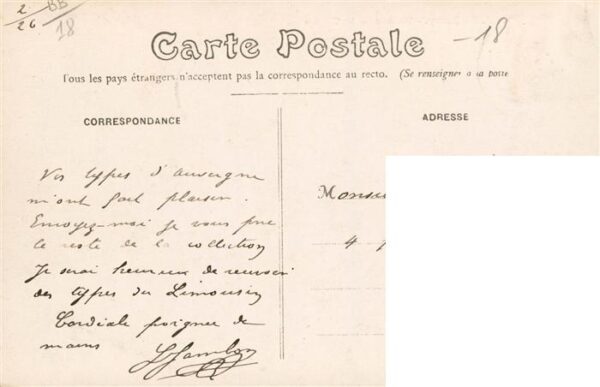 2
26
BB
18
-18
Carte Postale
Tous les pays étrangers n'acceptent pas la correspondance au recto. (Se renseigner à la poste
CORRESPONDANCE
ADRESSE
Vos types d'auvergne
m'ont fait plaisir.
Envoyez-moi je vous prie
le reste de la collection
Je serai heureux de recevoir
des types du Limousin
Cordiale poignée de
mains
Monsieu
4